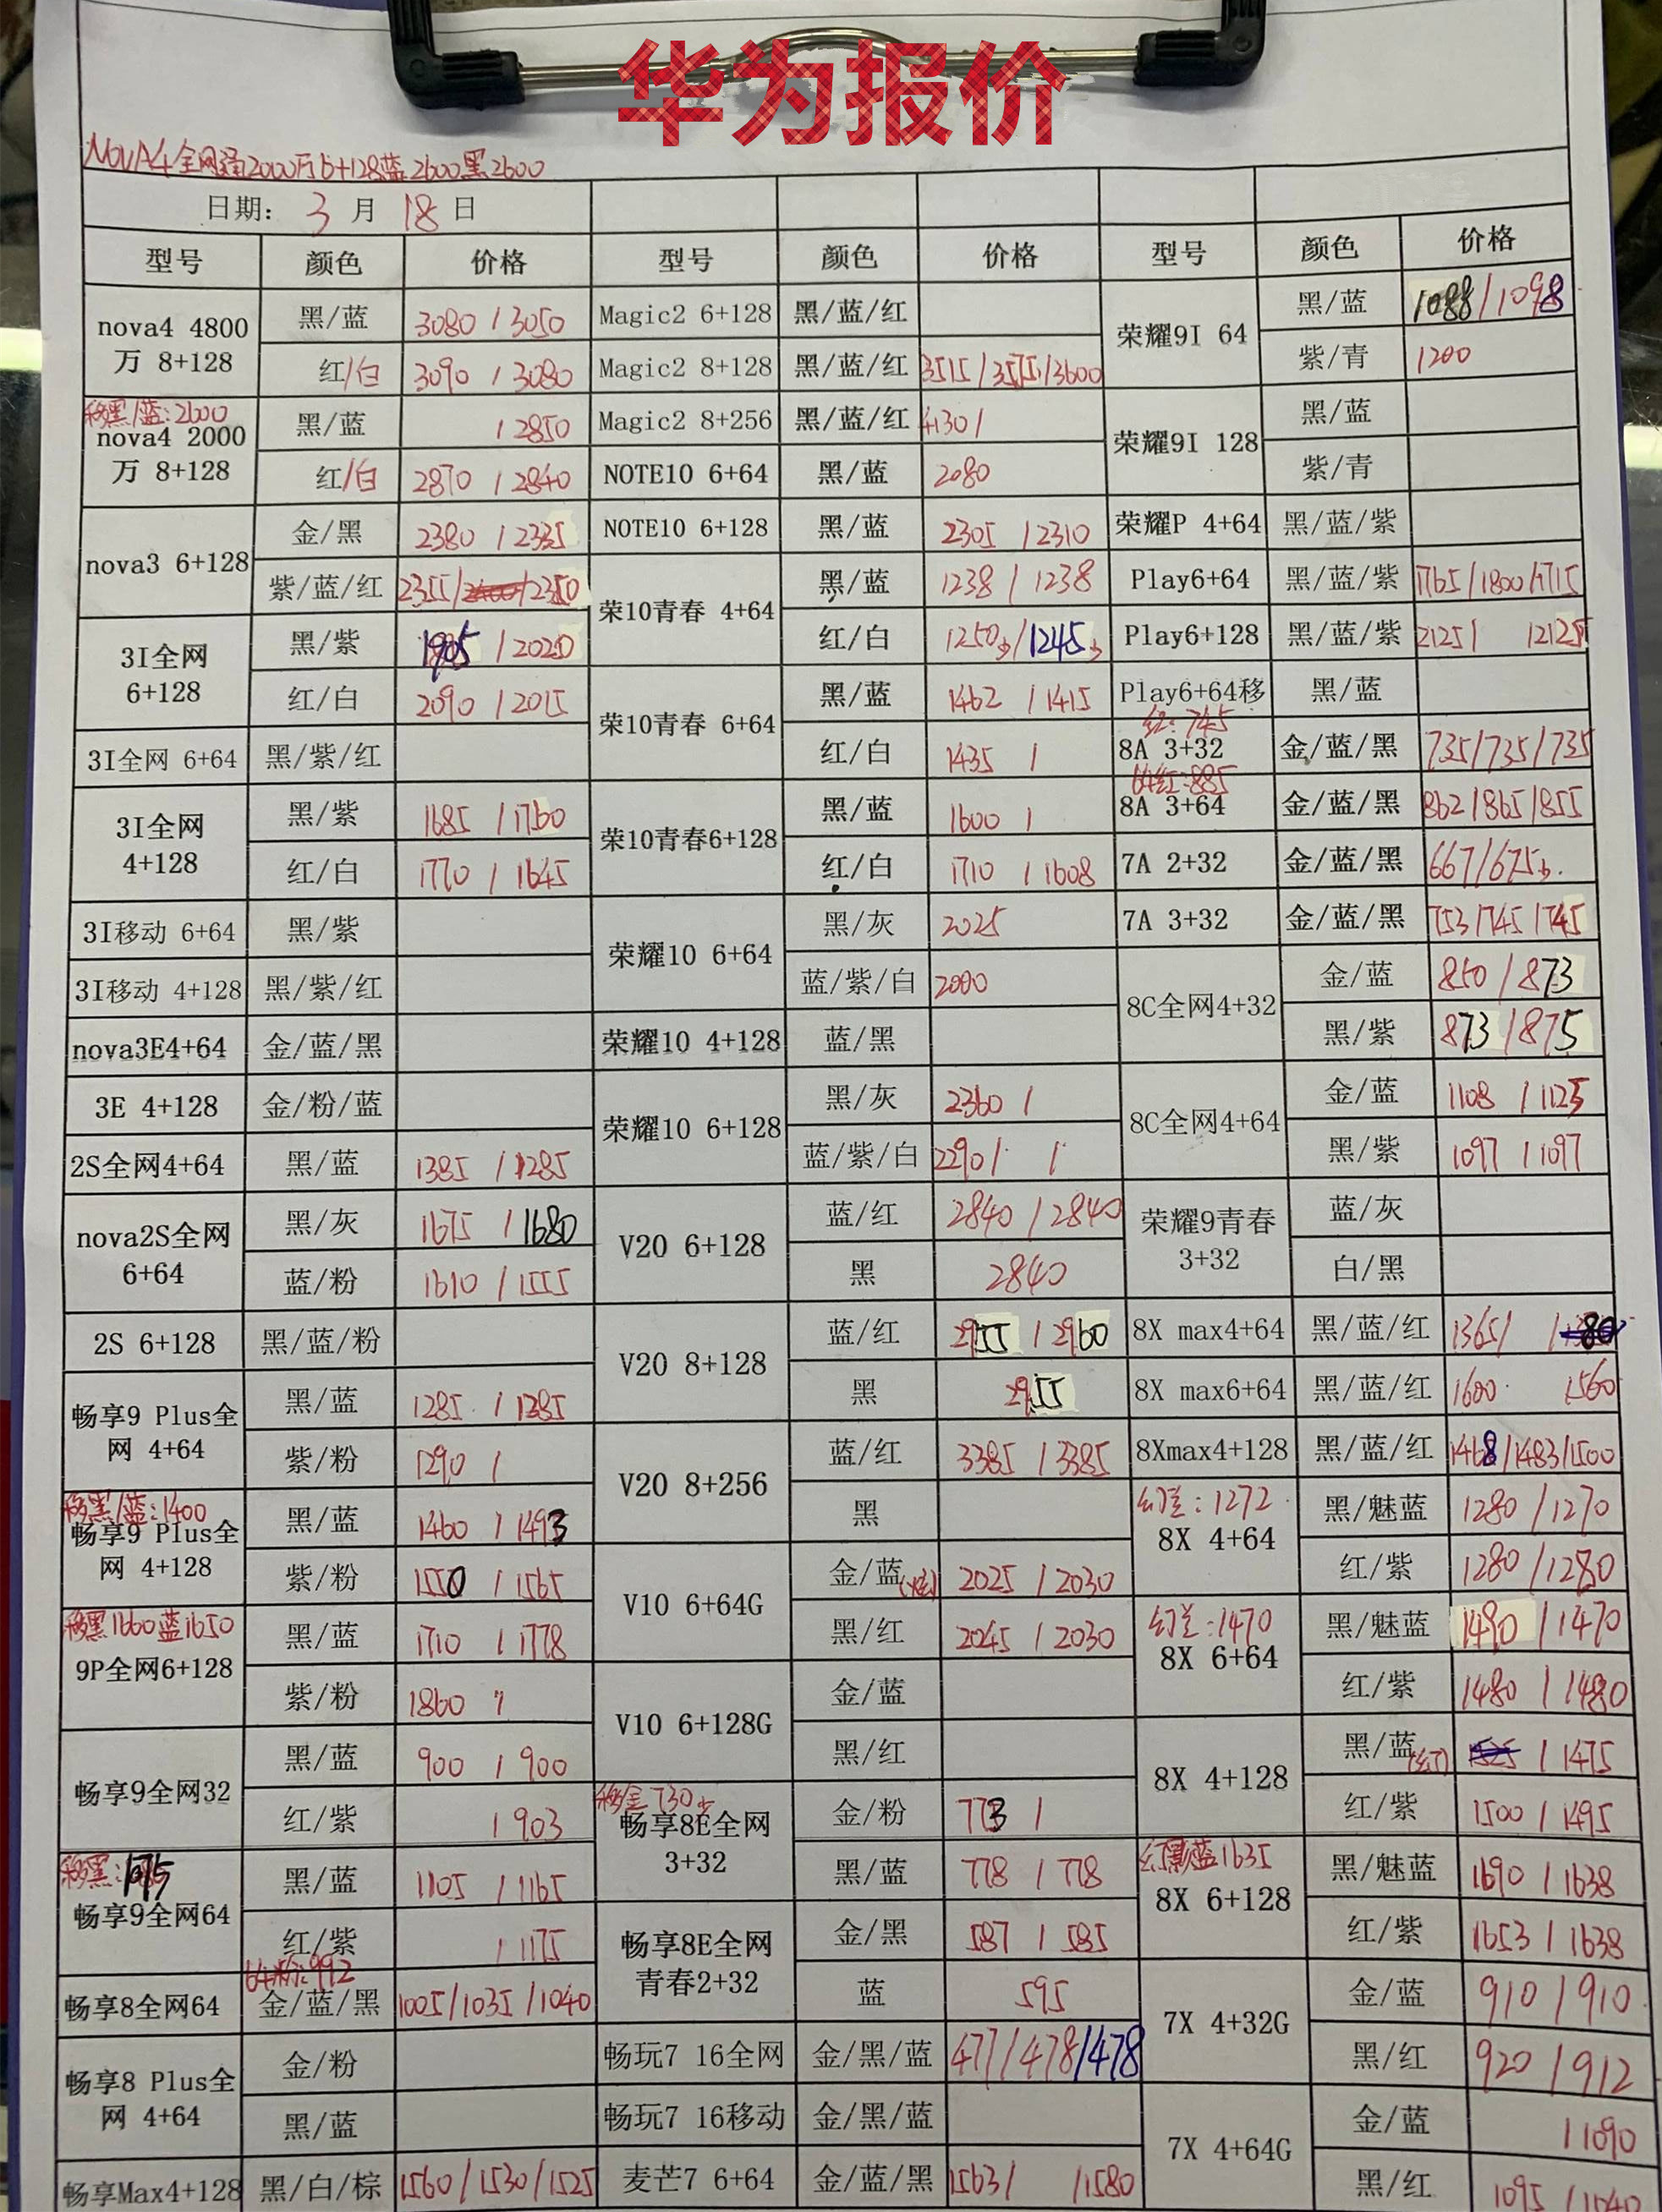 华为报价
NOVA4全网通2000万6+128蓝2600黑2600
日期: 3 月 18 日
型号 颜色 价格 型号 颜色 价格 型号 颜色 价格
nova4 4800万 8+128 黑/蓝 3080 / 3050
红/白 3090 / 3080
移黑/蓝:2600
nova4 2000万 8+128 黑/蓝 / 2850
红/白 2870 / 2840
nova3 6+128 金/黑 2380 / 2335
紫/蓝/红 2355/ /2350
3I全网 6+128 黑/紫 1905 / 2020
红/白 2090 / 2015
3I全网 6+64 黑/紫/红
3I全网 4+128 黑/紫 1685 / 1760
红/白 1770 / 1645
3I移动 6+64 黑/紫
3I移动 4+128 黑/紫/红
nova3E4+64 金/蓝/黑
3E 4+128 金/粉/蓝
2S全网4+64 黑/蓝 1385 / 1285
nova2S全网 6+64 黑/灰 1675 / 1680
蓝/粉 1610 / 1555
2S 6+128 黑/蓝/粉
畅享9 Plus全网 4+64 黑/蓝 1285 / 1285
紫/粉 1290 /
移黑/蓝:1400
畅享9 Plus全网 4+128 黑/蓝 1460 / 1493
紫/粉 1550 / 1565
移黑1660蓝1650
9P全网6+128 黑/蓝 1710 / 1778
紫/粉 1860 /
畅享9全网32 黑/蓝 900 / 900
红/紫 / 903
移黑:1075
畅享9全网64 黑/蓝 1105 / 1165
红/紫 / 1175
64粉:992
畅享8全网64 金/蓝/黑 1005/1035/1040
畅享8 Plus全网 4+64 金/粉
黑/蓝
畅享Max4+128 黑/白/棕 1560/1530/1525
Magic2 6+128 黑/蓝/红
Magic2 8+128 黑/蓝/红 3515/3575/3600
Magic2 8+256 黑/蓝/红 4130/
NOTE10 6+64 黑/蓝 2080
NOTE10 6+128 黑/蓝 2305 /2310
荣10青春 4+64 黑/蓝 1238 / 1238
红/白 1250少/1245少
荣10青春 6+64 黑/蓝 1462 / 1415
红/白 1435 /
荣10青春6+128 黑/蓝 1600 /
红/白 1710 / 1608
荣耀10 6+64 黑/灰 2025
蓝/紫/白 2000
荣耀10 4+128 蓝/黑
荣耀10 6+128 黑/灰 2360 /
蓝/紫/白 2290/ /
V20 6+128 蓝/红 2840 / 2840
黑 2840
V20 8+128 蓝/红 2955 / 2960
黑 2955
V20 8+256 蓝/红 3385 / 3385
黑
V10 6+64G 金/蓝(炫) 2025 / 2030
黑/红 2045 / 2030
V10 6+128G 金/蓝
黑/红
移金730少
畅享8E全网 3+32 金/粉 773 /
黑/蓝 778 / 778
畅享8E全网 青春2+32 金/黑 587 / 585
蓝 595
畅玩7 16全网 金/黑/蓝 477/478/478
畅玩7 16移动 金/黑/蓝
麦芒7 6+64 金/蓝/黑 1563/ /1580
荣耀9I 64 黑/蓝 1088/1098
紫/青 1200
荣耀9I 128 黑/蓝
紫/青
荣耀P 4+64 黑/蓝/紫
Play6+64 黑/蓝/紫 1765/1800/1715
Play6+128 黑/蓝/紫 2125/ /2125
Play6+64移 黑/蓝
红:745
8A 3+32 金/蓝/黑 735/735/735
64红:885
8A 3+64 金/蓝/黑 862/865/855
7A 2+32 金/蓝/黑 667/675少.
7A 3+32 金/蓝/黑 753/745/745
8C全网4+32 金/蓝 850 / 873
黑/紫 873 / 875
8C全网4+64 金/蓝 1108 / 1125
黑/紫 1097 / 1097
荣耀9青春 3+32 蓝/灰
白/黑
8X max4+64 黑/蓝/红 1365/ / 80
8X max6+64 黑/蓝/红 1600 1560
8Xmax4+128 黑/蓝/红 1468/1483/1500
幻兰:1272
8X 4+64 黑/魅蓝 1280 / 1270
红/紫 1280 / 1280
幻兰:1470
8X 6+64 黑/魅蓝 1490 / 1470
红/紫 1480 / 1480
8X 4+128 黑/蓝(幻) / 1475
红/紫 1500 / 1495
幻影蓝1635
8X 6+128 黑/魅蓝 1690 / 1638
红/紫 1653 / 1638
7X 4+32G 金/蓝 910 / 910
黑/红 920 / 912
7X 4+64G 金/蓝 / 1090
黑/红 1095 / 1040